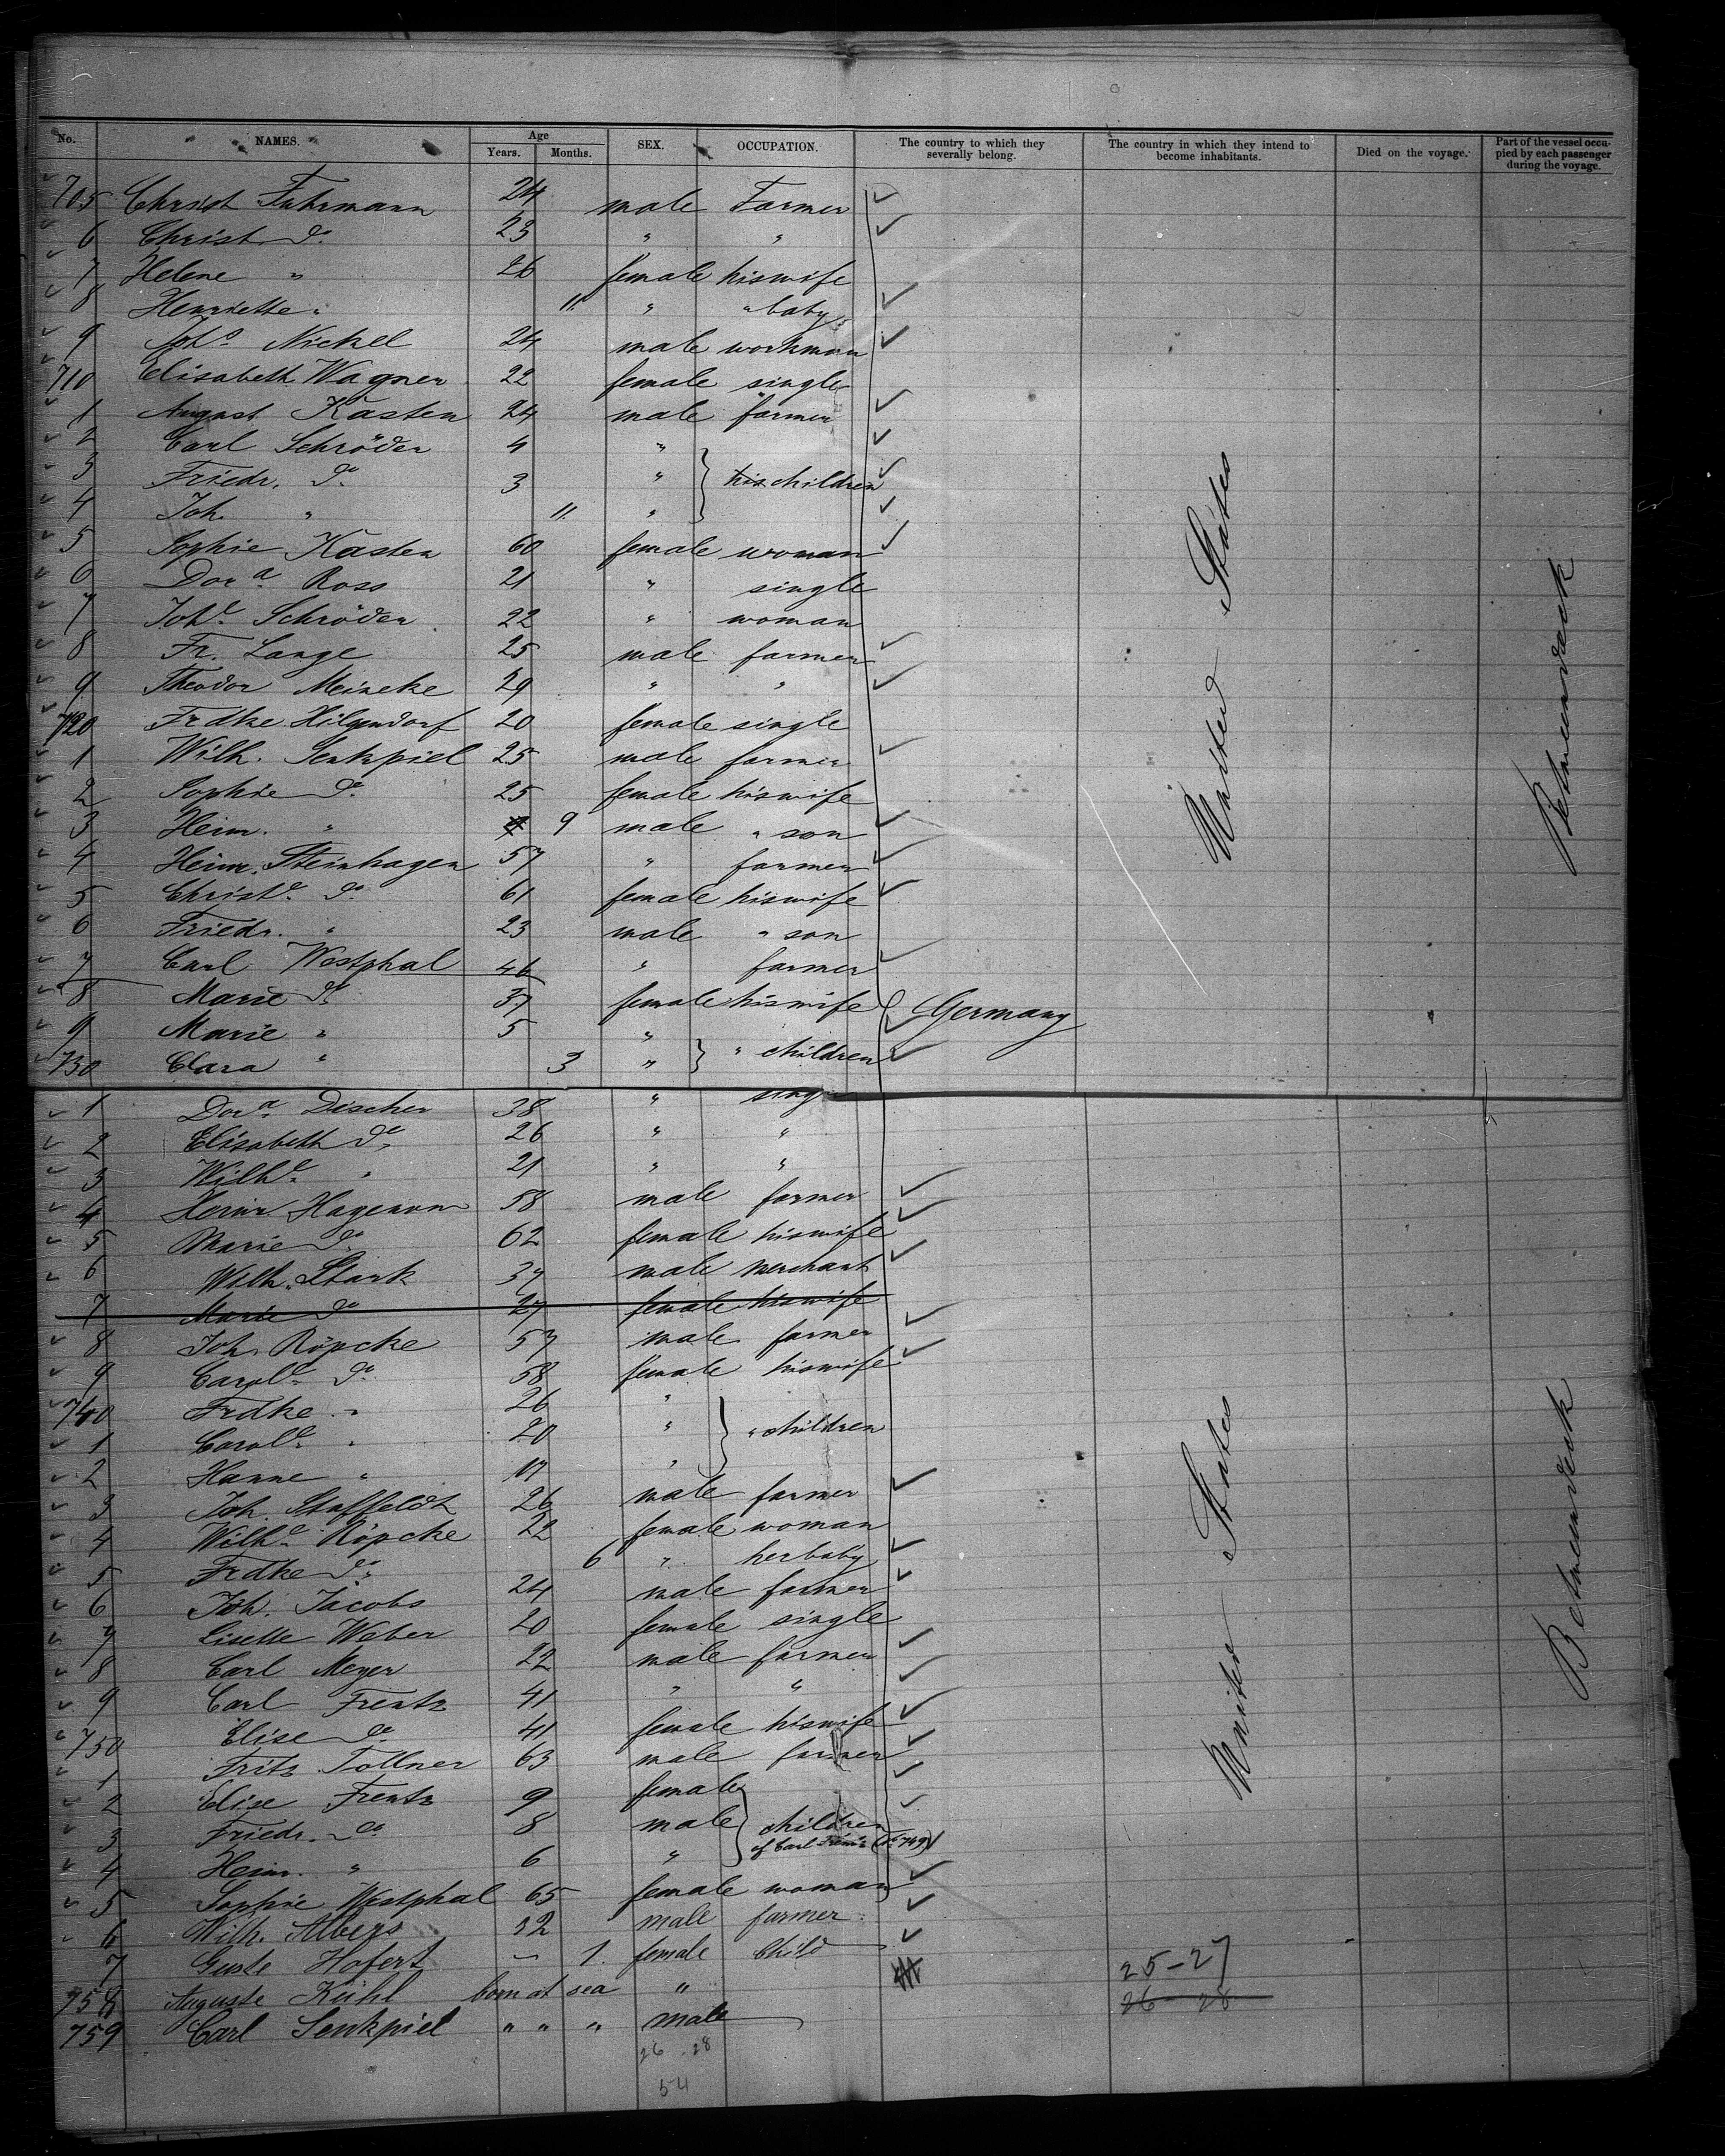 No. NAMES. Age Years. Months. SEX. OCCUPATION. The country to which they severally belong. The country in which they intend to become inhabitants. Died on the voyage. Part of the vessel occupied by each passenger during the voyage.
705 Christ Fuhrmann 24 male Farmer
6 Christ. do 23 " "
7 Helene " 26 female his wife
8 Henriette " 11 " " baby
9 Joho Nickel 24 male workman
710 Elisabeth Wagner 22 female single
1 August Kasten 24 male farmer
2 Carl Schröder 4 "
3 Friedr. do 3 " his children
4 Joh. " 11 "
5 Sophie Kasten 60 female woman
6 Dora Ross 21 " single
7 Johe Schröder 22 " woman
8 Fr. Lange 25 male farmer
9 Theodor Meineke 29 " "
720 Frdke Hilgendorf 20 female single
1 Wilh. Senkpiel 25 male farmer
2 Sophie do 25 female his wife
3 Heinr. " 9 male " son
4 Heinr. Steinhagen 57 " farmer
5 Christe do 61 female his wife
6 Friedr. " 23 male " son
7 Carl Westphal 46 " farmer
8 Marie do 37 female his wife Germany
9 Marie " 5 "
730 Clara " 3 " " children
United States
Betweendeck
1 Dora Discher 38 " sing
2 Elisabeth do 26 " "
3 Wilhe " 21 " "
4 Heinr. Hagemon 58 male farmer
5 Marie do 62 female his wife
6 Wilh. Stark 37 male merchant
7 Marie do 27 female his wife
8 Joh. Röpcke 57 male farmer
9 Carole do 58 female his wife
740 Frdke " 26 "
1 Carole " 20 " " children
2 Hanne " 17 "
3 Joh. Staffeldt 26 male farmer
4 Wilhe Röpcke 22 female woman
5 Frdke do 6 " her baby
6 Joh. Jacobs 24 male farmer
7 Lisette Weber 20 female single
8 Carl Meyer 22 male farmer
9 Carl Frentz 41 " "
750 Elise do 41 female his wife
1 Fritz Tollner 63 male farmer
2 Elise Frentz 9 female
3 Friedr. do 8 male children
of Carl Frentz (No 749)
4 Heinr. " 6 "
5 Sophie Westphal 65 female woman
6 Wilh. Albers 32 male farmer
7 Guste Hofert – 1. female child
758 Auguste Kühl born at sea "
759 Carl Senkpiel " " " male
United States
Betweendeck
25-27
26 28
26 - 28
54